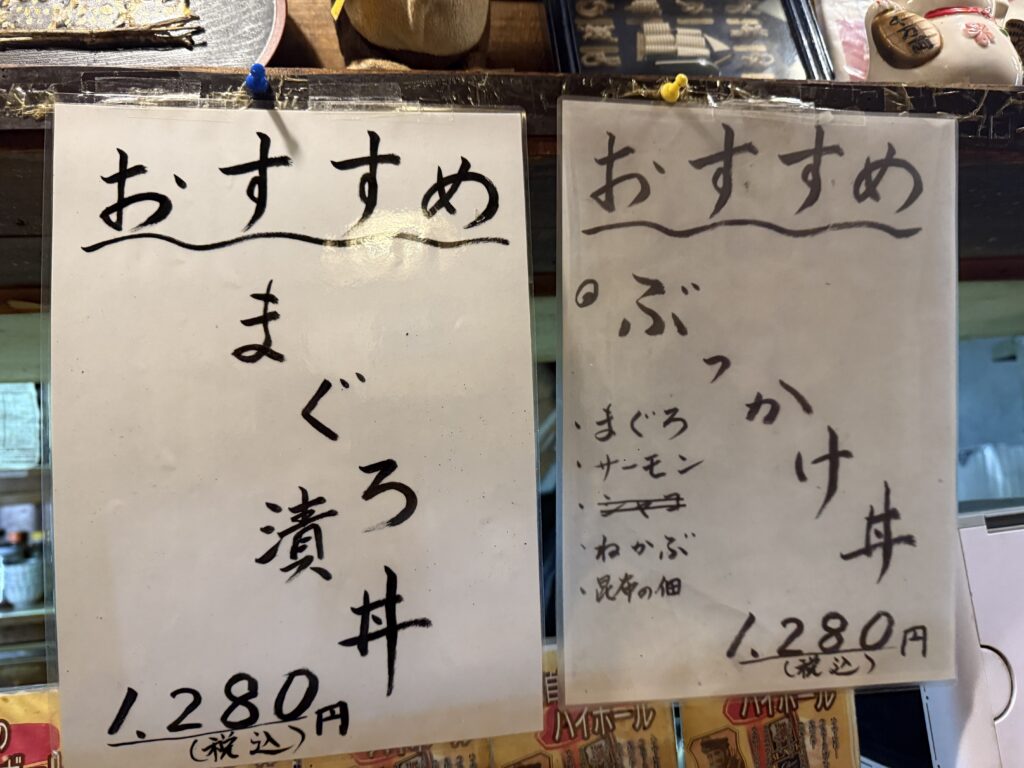 おすすめ
まぐろ漬丼
1.280円
(税込)
おすすめ
ぶっかけ丼
・まぐろ
・サーモン
・ねかぶ
・昆布の佃
1.280円
(税込)
ハイボール
ハイボール